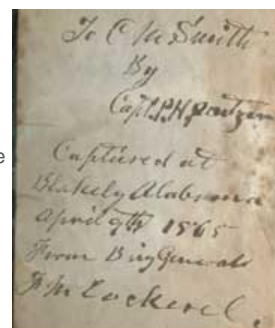 To C M Smith
By
Capt
Captured at
Blakely Alabama
April 9th 1865
From Brig General
F M Cockerel.
e